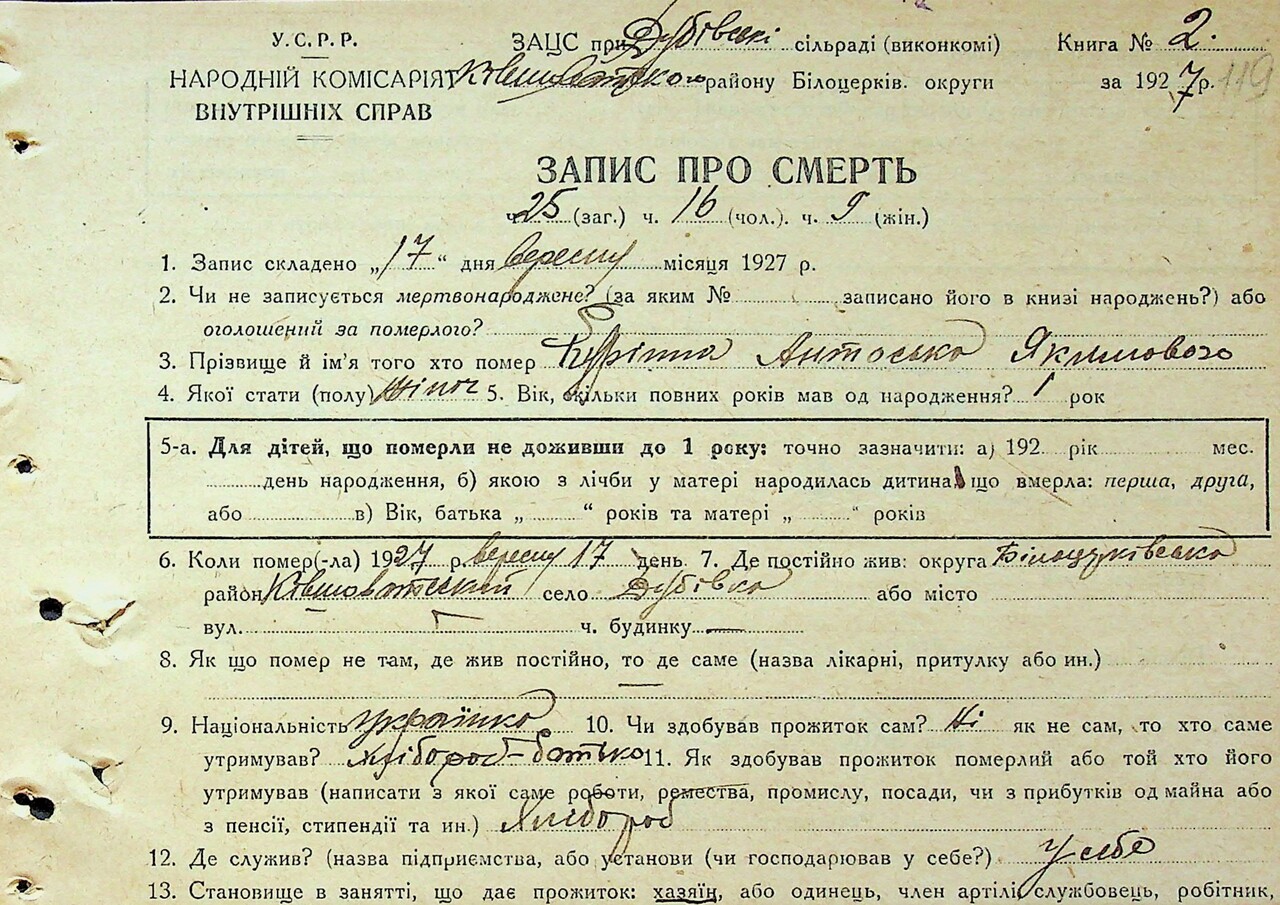 У.С.Р.Р.
НАРОДНІЙ КОМІСАРІЯТ
ВНУТРІШНІХ СПРАВ
ЗАЦС при Дубівські сільраді (виконкомі)
Ківшоватського району Білоцерків. округи
Книга № 2.
за 1927 р. 119
ЗАПИС ПРО СМЕРТЬ
ч. 25 (заг.) ч. 16 (чол.). ч. 9 (жін.)
1. Запис складено „17“ дня вересну місяця 1927 р.
2. Чи не записується мертвонароджене? (за яким № записано його в книзі народжень?) або
оголошений за померлого?
3. Прізвище й ім'я того хто помер Антоська Якимового
4. Якої стати (полу) жіноч 5. Вік, скільки повних років мав од народження? 1 рок
5-а. Для дітей, що померли не доживши до 1 року: точно зазначити: а) 192 рік мес.
день народження, б) якою з лічби у матері народилась дитина, що вмерла: перша, друга,
або в) Вік, батька „ “ років та матері „ “ років
6. Коли помер(-ла) 1927 р. вересну 17 день. 7. Де постійно жив: округа Білоцерківська
район Ківшоватський село Дубівка або місто
вул. — ч. будинку —
8. Як що помер не там, де жив постійно, то де саме (назва лікарні, притулку або ин.)
—
9. Національність українка 10. Чи здобував прожиток сам? Ні як не сам, то хто саме
утримував? хлібороб-батько 11. Як здобував прожиток померлий або той хто його
утримував (написати з якої саме роботи, ремества, промислу, посади, чи з прибутків од майна або
з пенсії, стипендії та ин.) Хлібороб
12. Де служив? (назва підприємства, або установи (чи господарював у себе?) У себе
13. Становище в занятті, що дає прожиток: хазяїн, або одинець, член артілі, службовець, робітник,